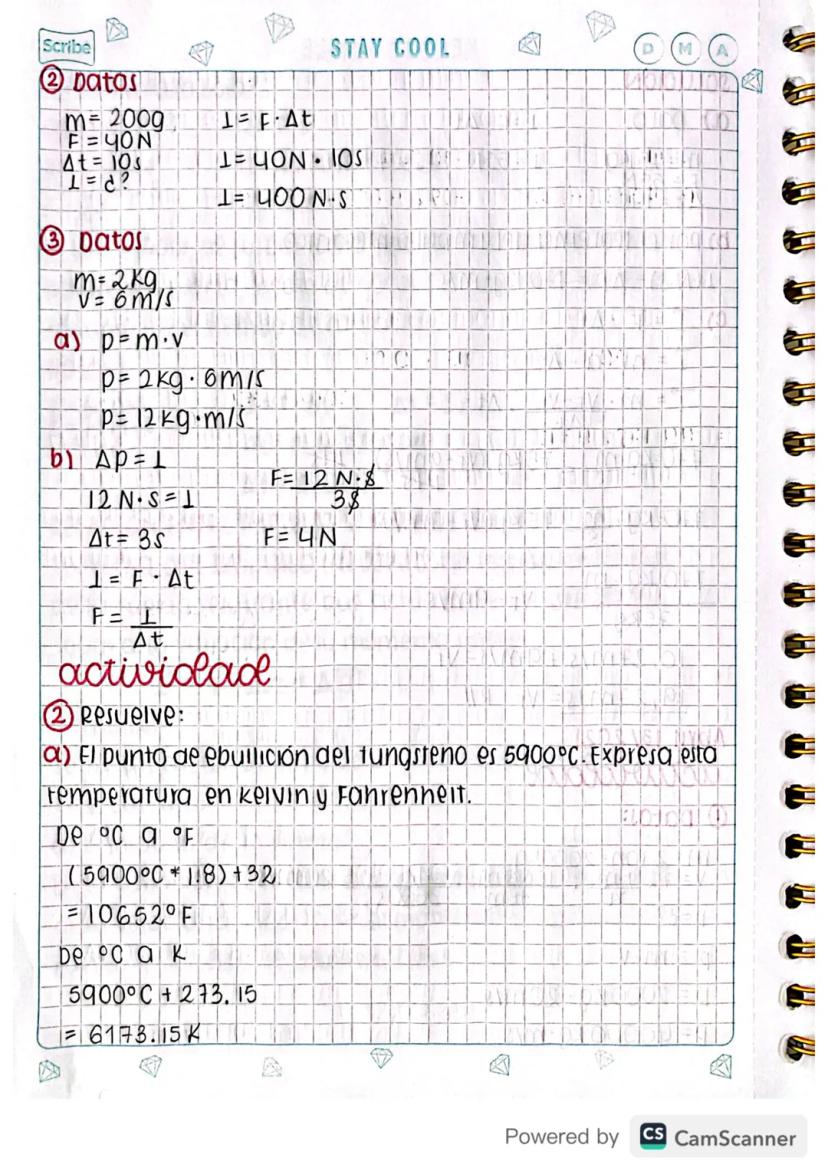 Scribe
STAY COOL
D M A
② Datos
m= 200g
F= 40N
Δt= 10s
I= ¿?
I= F·Δt
I= 40N · 10s
I= 400 N·s
③ Datos
m= 2kg
v= 6m/s
a) p=m·v
p= 2kg · 6m/s
p= 12kg·m/s
b) Δp= I
12 N·s = I
Δt= 3s
I = F · Δt
F = I
Δt
F= 12 N·s
3s
F= 4N
actividad
② Resuelve:
a) El punto de ebullición del tungsteno es 5900°C. Expresa esta
temperatura en Kelvin y Fahrenheit.
De °C a °F
(5900°C * 1.8) + 32
= 10652°F
De °C a K
5900°C + 273.15
= 6173.15 K
Powered by CS CamScanner